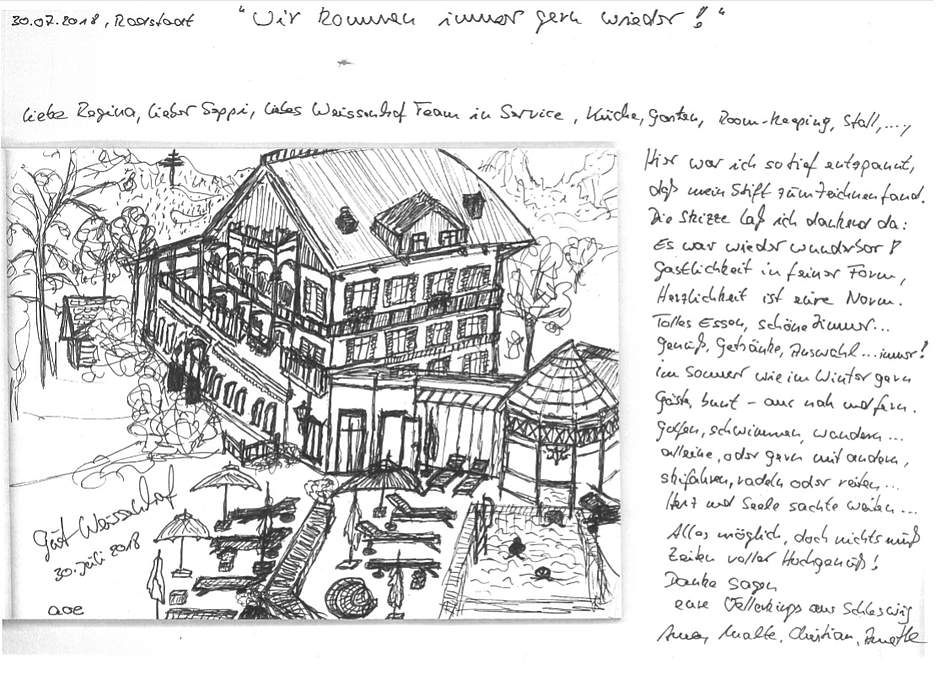 30.07.2018, Radstadt
"Wir kommen immer gern wieder!"
Liebe Regina, lieber Seppi, liebes Weissenhof Team in Service, Küche, Garten, Room-Keeping, Stall, ....,
Hier war ich so tief entspannt,
daß mein Stift zum Zeichnen fand.
Die Skizze laß ich dankend da:
Es war wieder wunderbar!
Gastlichkeit in feiner Form,
Herzlichkeit ist eure Norm.
Tolles Essen, schöne Zimmer...
Genuß, Getränke, Auswahl... immer!
Im Sommer wie im Winter gern
Gäste, bunt - aus nah und fern.
Golfen, schwimmen, wandern...
alleine, oder gern mit andern,
skifahren, radeln oder reiten...
Herz und Seele sachte weiten...
Alles möglich, doch nichts muß
Zeiten voller Hochgenuß!
Danke sagen
eure aus Schleswig
Malte, Christian,
Gut Weissenhof
30. Juli 2018
aoe